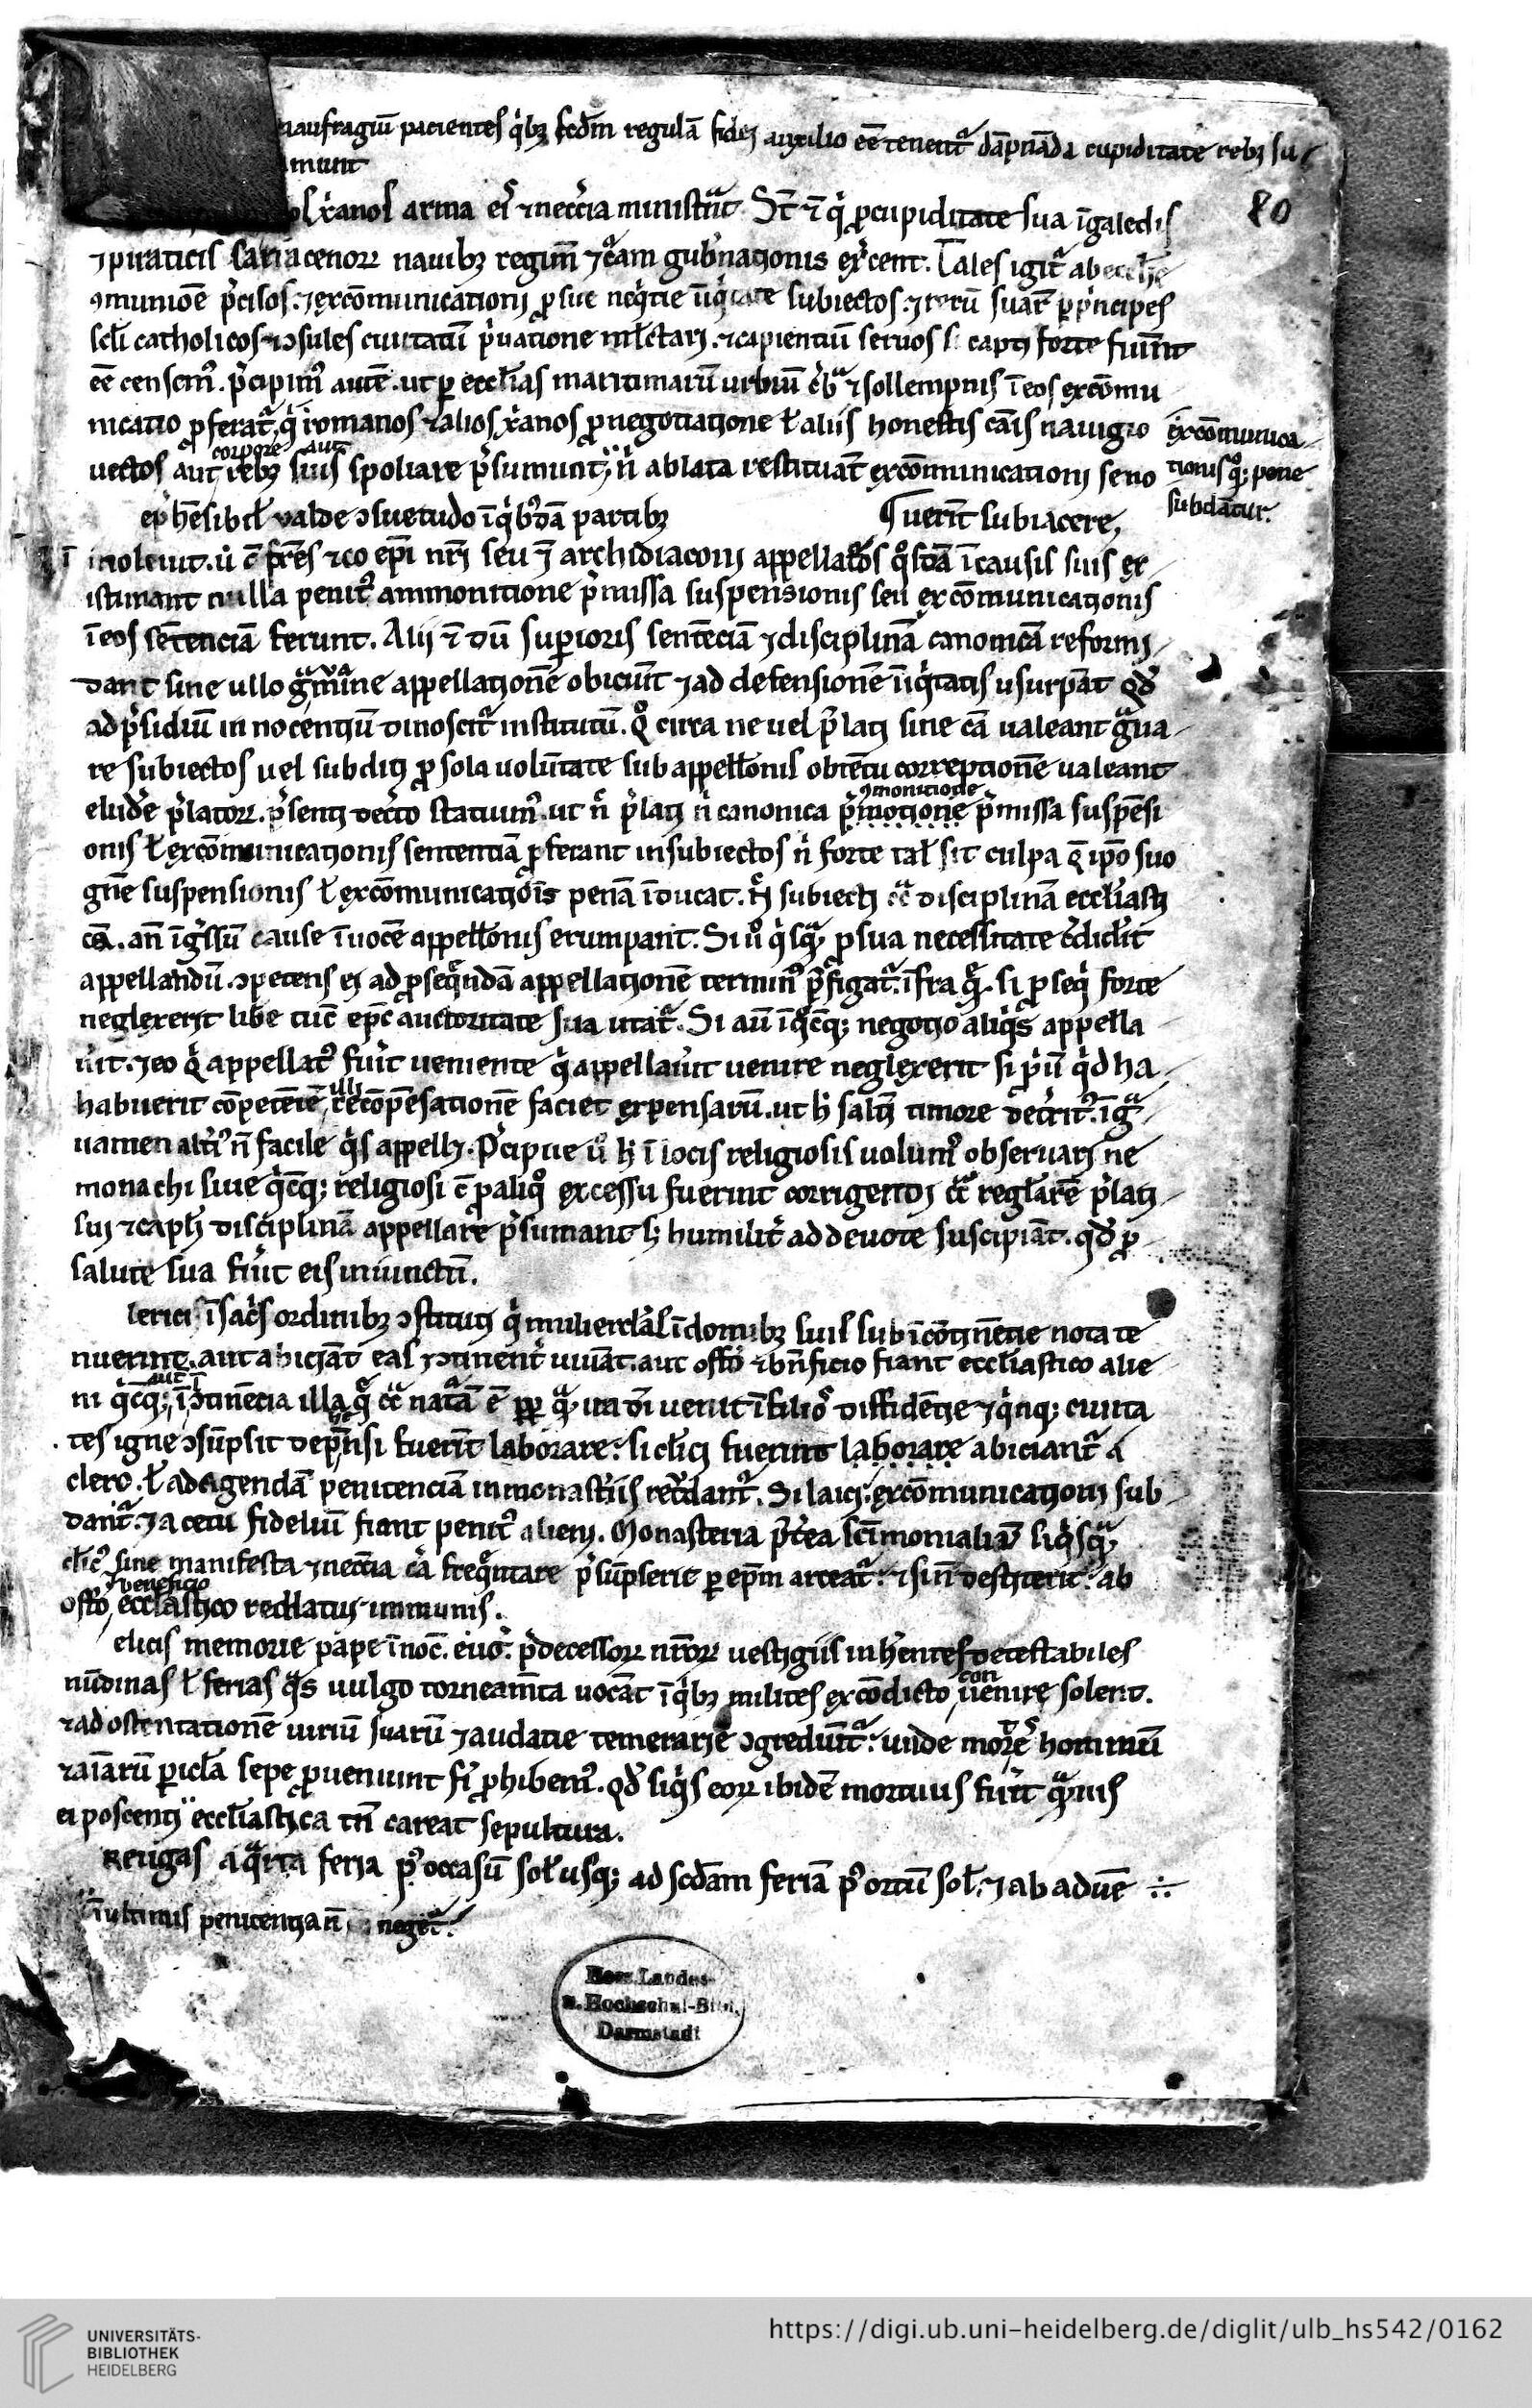 naufragiū pacientes q'bꝫ scdm̄ regulā fidei auxilio eē tenent᷑ dāpnāda cupiditate rebꝫ su
munt
x̄anos arma eis ⁊ necc̄ia ministrāt. St̄ ⁊ q' ꝓ cupiditate sua ī galedis
⁊ piraticis sarracenoꝝ nauibꝫ regim̄ ⁊ c̄am gub'nationis ex'cent. Tales igit᷑ ab eccl'ie
ꝯmunioē p'cisos. ⁊ excōmunicationi ꝓ sue neq'tie subiectos. ⁊ rerū suaꝝ ꝑ p'ncipes
scl'i catholicos ⁊ ꝯsules ciuitatū p'uatione ml'ctari. ⁊ capientiū seruos si capti forte fuerint
eē censem᷒. p'cipim᷒ autē. ut ꝑ eccl'ias maritimarū urbiū c'bra ⁊ sollempnis ī eos excōmu
nicatio ꝓferat᷑, q' romanos ⁊ alios x̄anos ꝓ negotiatione ł aliis honestis cāis nauigio
uectos aut rebꝫ suis spoliare p'sumunt, n' ablata restituāt excōmunicationi se no
corpore aut
excōmunica
tionis q᷒; pene
subdātur.
ep'hēsibil' valde ꝯsuetudo ī q'b᷒dā partibꝫ
uerīt subiacere,
inoleuit. ū c̄ fr̄es ⁊ co ep̄i nr̄i seu ⁊ archidiaconi appellatos q᷒sdā ī causis suis ex
istimant nulla penit᷒ ammonitione p'missa suspensionis seu excōmunicationis
ī eos sētenciā ferunt. Alii ⁊ dū sup̱ioris sentēciā ⁊ disciplinā canonicā reformi
dant sine ullo grauamine appellationē obiciūt ⁊ ad defensionē iniq'tatis usurpāt qd'
ad p'sidiū innocentiū dinoscit᷑ institutū. Q᷒ circa ne uel p'lati sine cā ualeant graua
re subiectos uel subditi ꝓ sola uolūtate sub appell'onis obtētu correptionē ualeant
ꝯmonicione
elud'e p'latoꝝ. p'senti decr'to statuim᷒. ut n̄ p'lati n' canonica p'motione p'missa suspēsi
onis ł excōmunicationis sententiā ꝓferant in subiectos n' forte tal' sit culpa q̄ ip̄o suo
gn̄e suspensionis ł excōmunicatiōis penā īducat. N' subiecti ꝯtra disciplinā eccl'iasti
cā. an̄ īg'ssū cause ī uocē appell'onis erumpant. Si ū q'sqᷓ; ꝓ sua necessitate c'did'it
appellandū. ꝯpetens ei ad ꝓseq'ndā appellationē termin᷒ p'figat᷑. īfra q̄. si ꝓseq' forte
neglexerit lib'e tūc ep̄c auctoritate sua utat᷑. Si aū ī q'cq; negotio aliq's appella
u'it. ⁊ eo q' appellat᷒ fu'it ueniente q' appellau'it uenire neglexerit si ꝓpriū q'd ha
habuerit cōpetētē, recōpēsationē faciet expensarū. ut h' saltē timore det'rit᷒. ī gra
uamen alt'i᷒ n̄ facile q's appellꝫ. P'cipue ū h' ī locis religiosis uolum᷒ obseruari ne
monachi siue q'cūq; religiosi c̄ ꝓ aliq᷒ excessu fuerint corrigendi ꝯtra regl'arē p'lati
sui ⁊ capl'i disciplinā appellare p'sumant sꝫ humilit' ad deuote suscipiāt. qd' ꝓ
salute sua fu'it eis iniunctū.
lerici ī sac's ordinibꝫ ꝯstituti q' muliercl'as ī domibꝫ suis sub īcōtinētie nota te
nuerint. aut abiciāt eas ⁊ ꝯtinent' uiuāt. aut off'o ⁊ bn̄ficio fiant eccl'iastico alie
ni q'cūq; ī ꝯtinēcia illa q̄ ꝯtra natᷓā ē ꝓpt' qᷓ ira dī uenit ī filios diffidētie ⁊ q'nq; ciuita
tes igne ꝯsūpsit dep'hēnsi fuerīt laborare. si cl'ici fuerint laborare abiciant᷑ a
clero. ł ad agendā penitenciā in monast'iis rec'dant᷑. Si laici. excōmunicationi sub
dant᷑. ⁊ a cetu fideliū fiant penit᷒ alieni. Monasteria p't'ea sc̄timonialiū si q'sqᷓ;
cl'ic᷒ sine manifesta ⁊ necc̄ia cā freq'ntare p'sūpserit ꝑ ep̄m arceat᷑. ⁊ si n̄ destiterit. ab
⁊ beneficio
off'o, eccl'astico reddatur immunis.
elicis memorie pape īnoc̄. ⁊ eug'. p'decessoꝝ nr̄oꝝ uestigiis inh'entes detestabiles
nūdinas ł ferias q's uulgo torneam̄ta uocāt ī q'bꝫ milites ex cōdicto conuenire solent.
⁊ ad ostentationē uiriū suarū ⁊ audatie temerarie ꝯgrediūt᷑. unde mortes hominū
⁊ aīarū pericl'a sepe ꝓueniunt fi'i ꝓhibem᷒. qd' si q's eoꝝ ibidē mortuus fu'it qᷓuis
ei poscenti eccl'iastica tn̄ careat sepultura.
Reugas a qᷓrta feria p᷒ occasū sol' usq; ad scd̄am feriā p᷒ ortū sol'. ⁊ ab aduē
ī ultimis penitentia n̄ neget᷑.
80
Hess. Landes-
u. Hochschul-Bibl.
Darmstadt
UNIVERSITÄTS-
BIBLIOTHEK
HEIDELBERG
https://digi.ub.uni-heidelberg.de/diglit/ulb_hs542/0162